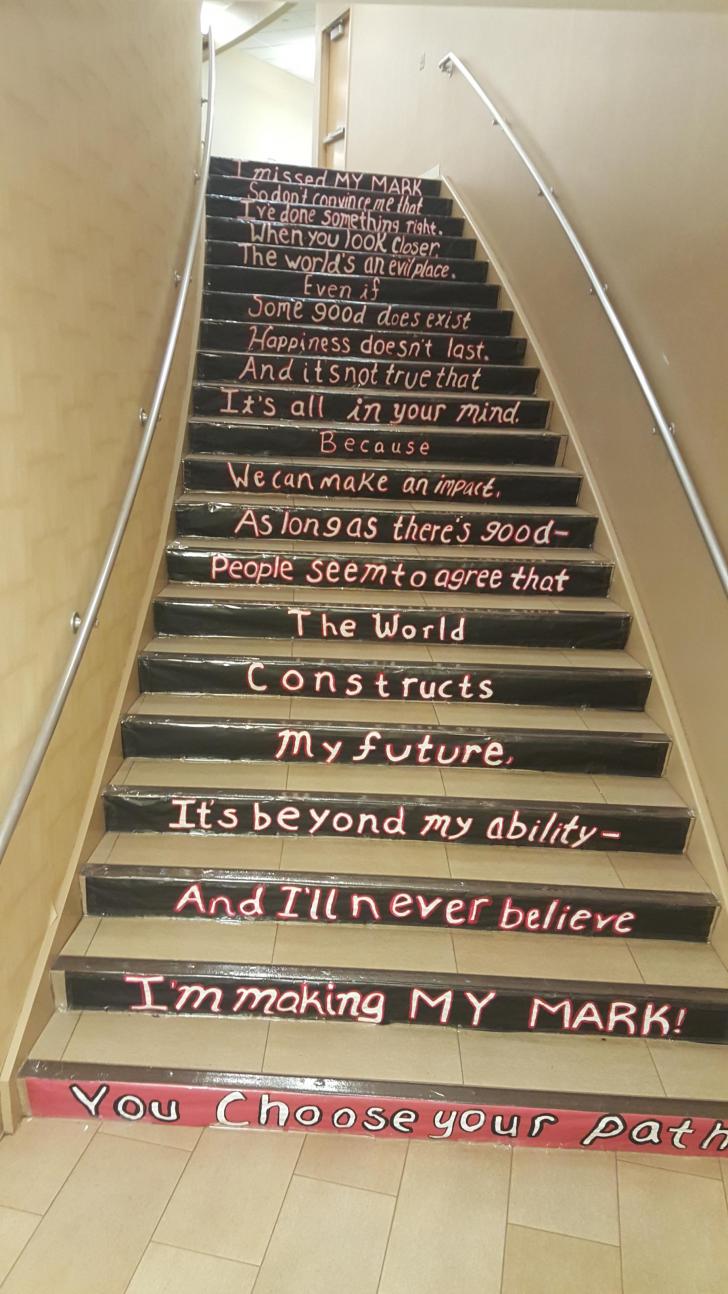 I missed MY MARK
So don't convince me that
I've done something right.
When you look closer.
The world's an evil place.
Even if
Some good does exist
Happiness doesn't last.
And it's not true that
It's all in your mind.
Because
We can make an impact.
As long as there's good-
People seem to agree that
The World
Constructs
My future.
It's beyond my ability-
And I'll never believe
I'm making MY MARK!
You Choose your path